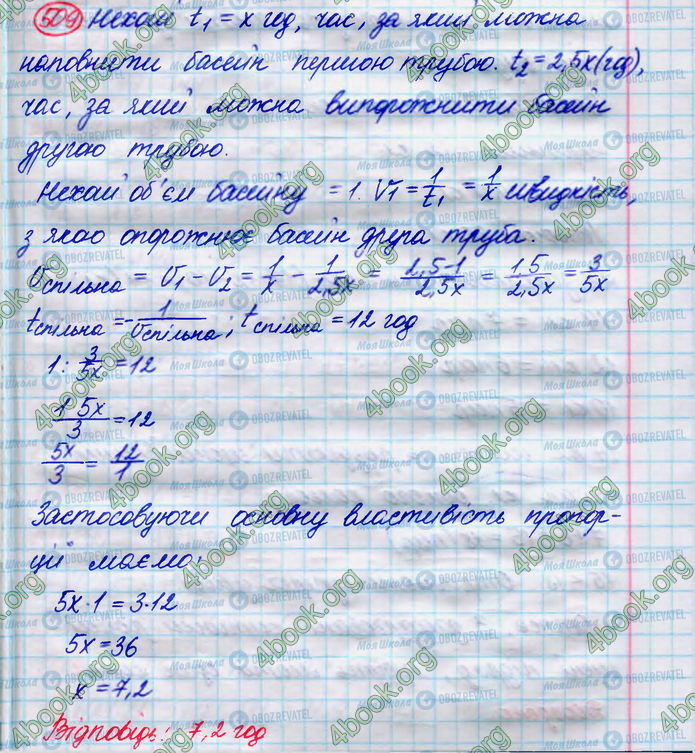 509 Нехай t₁ = x год, час, за який можна
наповнити басейн першою трубою. t₂ = 2,5x (год),
час, за який можна випорожнити басейн
другою трубою.
Нехай об'єм басейну = 1. V₁ = 1/t₁ = 1/x швидкість,
з якою опорожнює басейн друга труба.
Vспільна = V₁ - V₂ = 1/x - 1/2,5x = 2,5-1/2,5x = 1,5/2,5x = 3/5x
tспільна = 1/Vспільна; tспільна = 12 год
1 : 3/5x = 12
1 5x/3 = 12
5x/3 = 12/1
Застосовуючи основну властивість пропор-
ції маємо:
5x·1 = 3·12
5x = 36
x = 7,2
Відповідь: 7,2 год
4book.org
Моя Школа
OBOZREVATEL